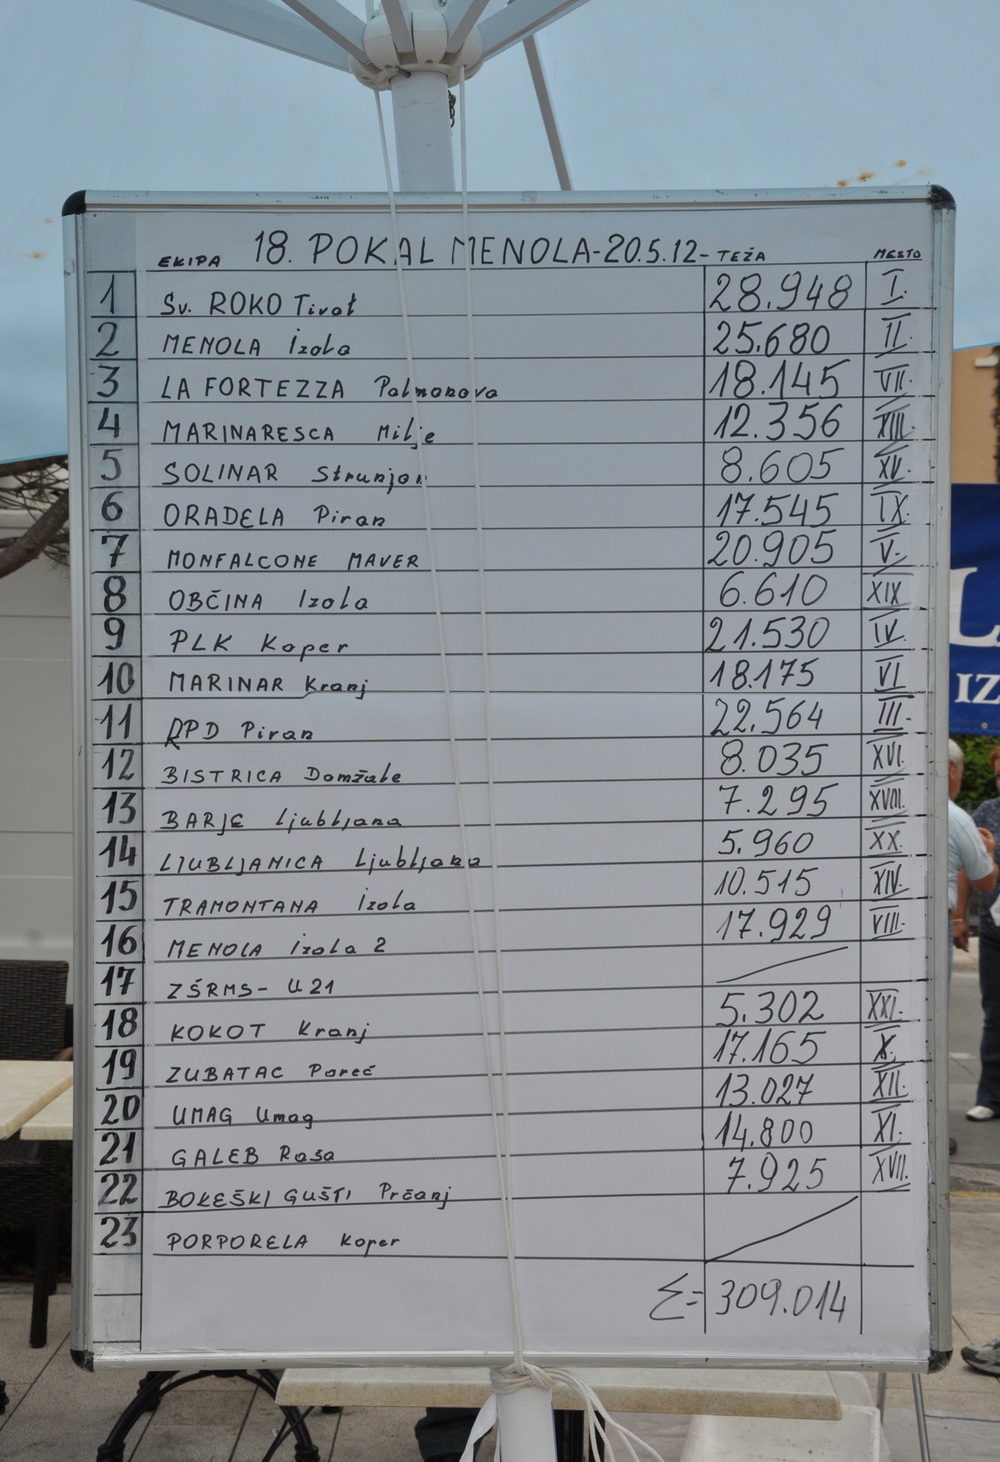 EKIPA 18. POKAL MENOLA-20.5.12- TEŽA MESTO
1 Sv. ROKO Tivat 28.948 I.
2 MENOLA Izola 25.680 II.
3 LA FORTEZZA Palmanova 18.145 VII.
4 MARINARESCA Milje 12.356 XIII.
5 SOLINAR Strunjan 8.605 XV.
6 ORADELA Piran 17.545 IX.
7 MONFALCONE MAVER 20.905 V.
8 OBČINA Izola 6.610 XIX
9 PLK Koper 21.530 IV.
10 MARINAR Kranj 18.175 VI
11 RPD Piran 22.564 III.
12 BISTRICA Domžale 8.035 XVI.
13 BARJE Ljubljana 7.295 XVIII.
14 LJUBLJANICA Ljubljana 5.960 XX.
15 TRAMONTANA Izola 10.515 XIV.
16 MENOLA Izola 2 17.929 VIII.
17 ZŠRMS- U21
18 KOKOT Kranj 5.302 XXI.
19 ZUBATAC Poreč 17.165 X.
20 UMAG Umag 13.027 XII.
21 GALEB Rasa 14.800 XI.
22 BOKEŠKI GUŠTI Prčanj 7.925 XVII.
23 PORPORELA Koper
Σ= 309.014
L
IZ